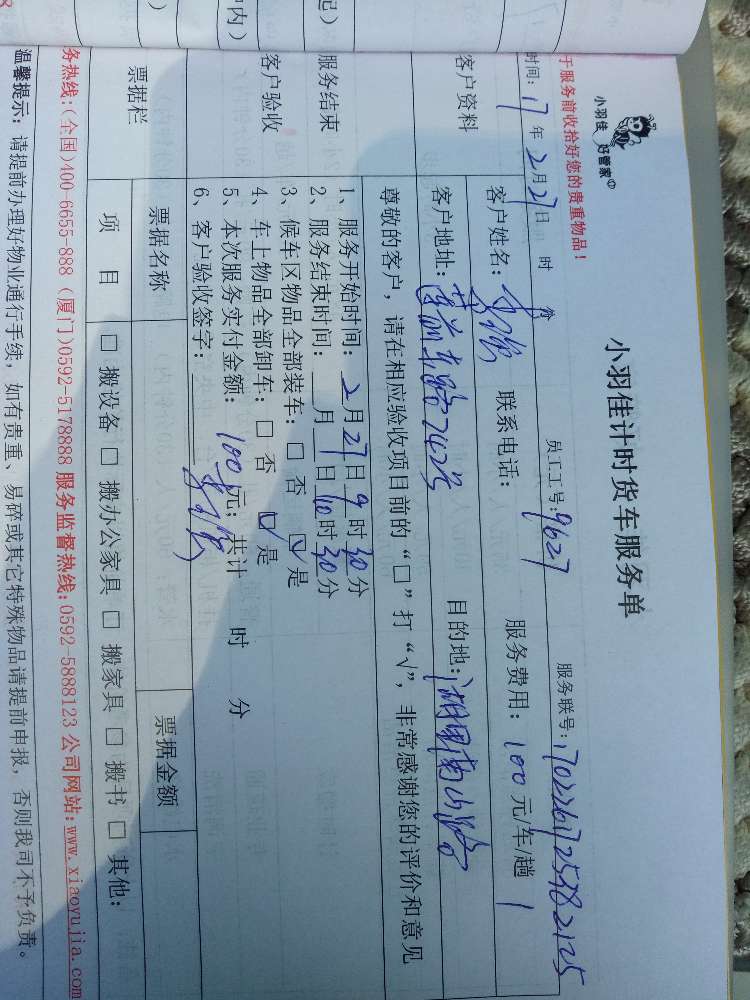 小羽佳 好管家
小羽佳计时货车服务单
于服务前收拾好您的贵重物品！
时间：17年2月27日 时 分 员工工号：9627 服务联号：
客户资料
客户姓名： 联系电话： 服务费用：100元/车/趟
客户地址： 目的地：
尊敬的客户，请在相应验收项目前的“□”打“√”，非常感谢您的评价和意见
服务结束
客户验收
1、服务开始时间：2月27日9时30分
2、服务结束时间：__月__日10时30分
3、候车区物品全部装车：□ 否 ☑ 是
4、车上物品全部卸车：□ 否 ☑ 是
5、本次服务实付金额：100元；共计 时 分
6、客户验收签字：
票据栏
票据名称 票据金额
项 目 □ 搬设备 □ 搬办公家具 □ 搬家具 □ 搬书 □ 其他：
务热线：(全国)400-6655-888 (厦门)0592-5178888 服务监督热线：0592-5888123 公司网站：www.xiaoyujia.com
温馨提示：请提前办理好物业通行手续，如有贵重、易碎或其它特殊物品请提前申报，否则我司不予负责。